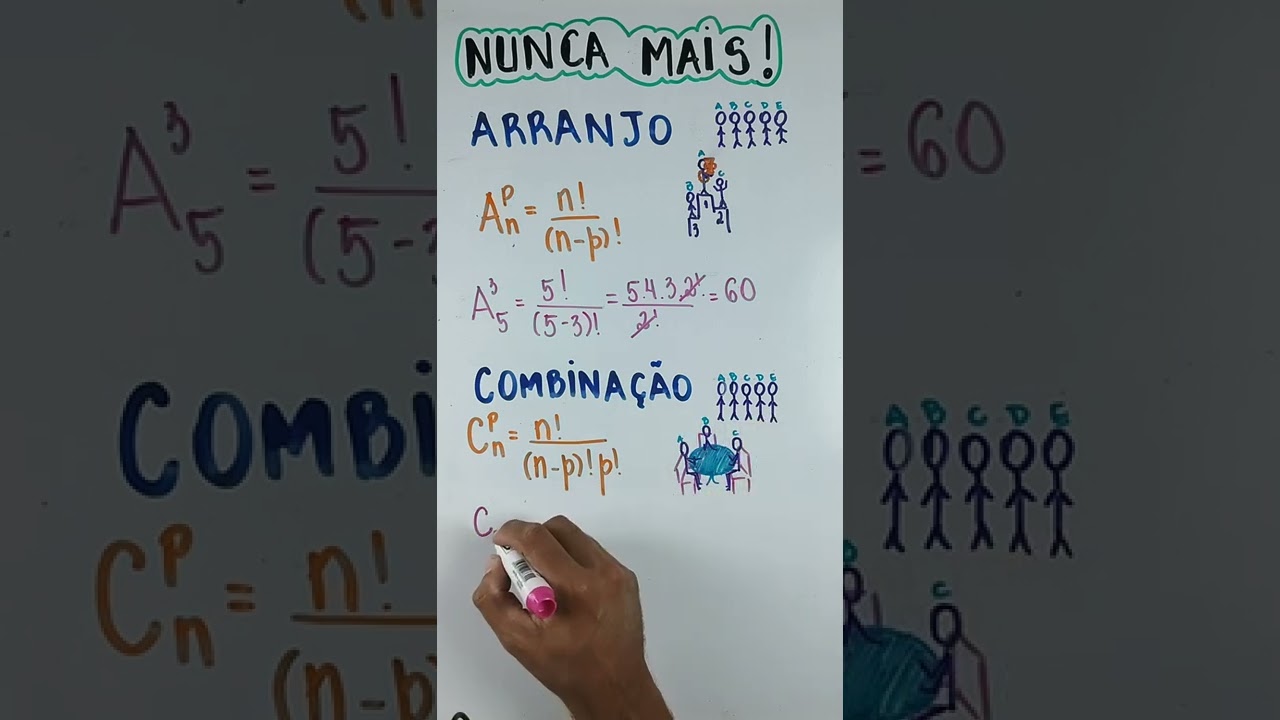 NUNCA MAIS!
ARRANJO
A B C D E
A
B C
1
2
3
A_n^p = n!/(n-p)!
A_5^3 = 5!/(5-3)! = 5.4.3.2!/2! = 60
COMBINAÇÃO
A B C D E
C_n^p = n!/(n-p)!p!
B
A C
C